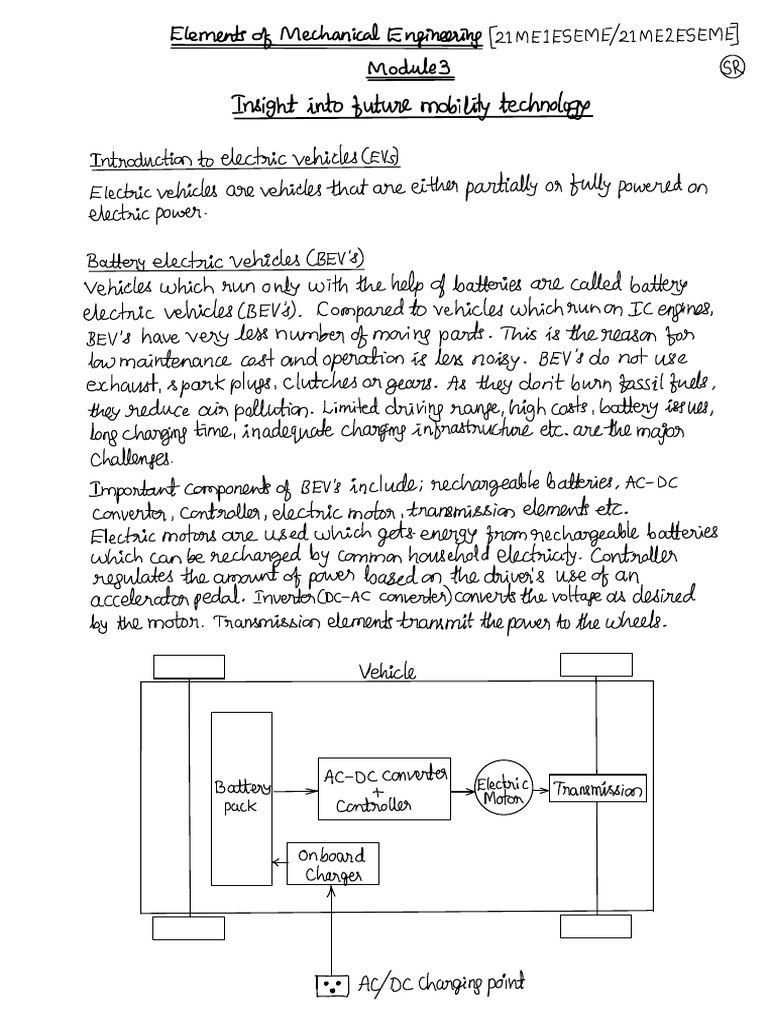 Elements of Mechanical Engineering [21ME1ESEME/21ME2ESEME]
Module 3
SR
Insight into future mobility technology
Introduction to electric vehicles (EVs)
Electric vehicles are vehicles that are either partially or fully powered on
electric power.
Battery electric vehicles (BEV's)
Vehicles which run only with the help of batteries are called battery
electric vehicles (BEV's). Compared to vehicles which run on IC engines,
BEV's have very less number of moving parts. This is the reason for
low maintenance cost and operation is less noisy. BEV's do not use
exhaust, spark plugs, clutches or gears. As they don't burn fossil fuels,
they reduce air pollution. Limited driving range, high costs, battery issues,
long charging time, inadequate charging infrastructure etc. are the major
challenges.
Important components of BEV's include; rechargeable batteries, AC-DC
converter, controller, electric motor, transmission elements etc.
Electric motors are used which gets energy from rechargeable batteries
which can be recharged by common household electricity. Controller
regulates the amount of power based on the driver's use of an
accelerator pedal. Inverter (DC-AC converter) converts the voltage as desired
by the motor. Transmission elements transmit the power to the wheels.
Vehicle
Battery
pack
AC-DC Converter
+
Controller
Electric
Motor
Transmission
Onboard
Charger
AC/DC Charging point